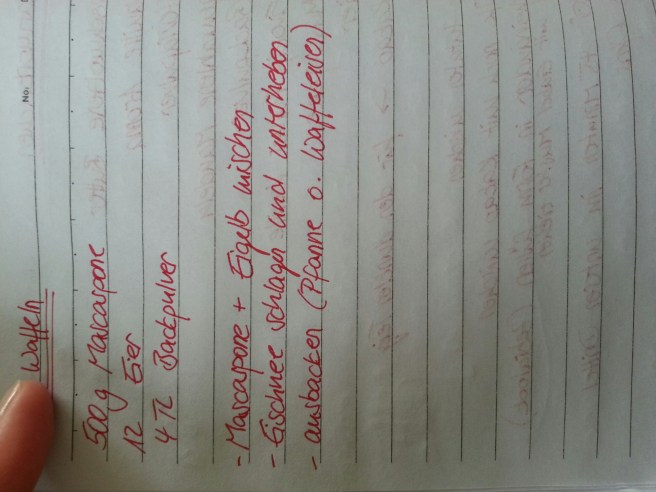 No.
Waffeln
500 g Mascarpone
12 Eier
4 TL Backpulver
- Mascarpone + Eigelb mischen
- Eischnee schlagen und unterheben
- ausbacken (Pfanne o. Waffeleisen)